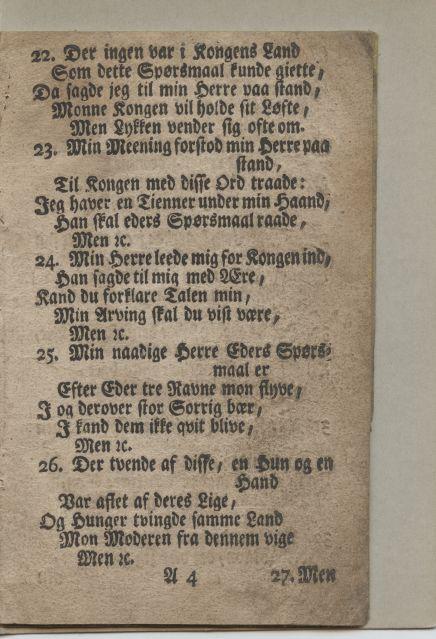 22. Der ingen var i Kongens Land
Som dette Spørsmaal kunde giette,
Da sagde jeg til min Herre paa stand,
Monne Kongen vil holde sit Løfte,
Men Lykken vender sig ofte om.
23. Min Meening forstod min Herre paa
stand,
Til Kongen med disse Ord traade:
Jeg haver en Tienner under min Haand,
Han skal eders Spørsmaal raade,
Men ꝛc.
24. Min Herre leede mig for Kongen ind,
Han sagde til mig med Ære,
Kand du forklare Talen min,
Min Arving skal du vist være,
Men ꝛc.
25. Min naadige Herre Eders Spørs-
maal er
Efter Eder tre Ravne mon flyve,
I og derover stor Sorrig bær,
I kand dem ikke qvit blive,
Men ꝛc.
26. Der tvende af disse, en Hun og en
Hand
Var aflet af deres Lige,
Og Hunger tvingde samme Land
Mon Moderen fra dennem vige
Men ꝛc.
A 4 27. Men